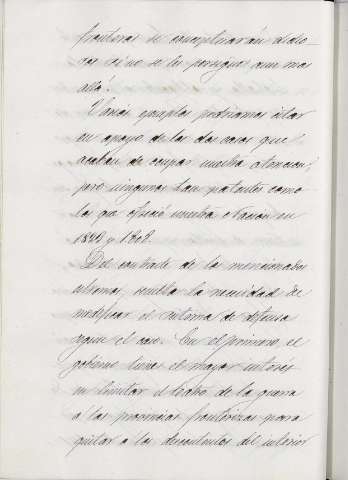 fronteras se conceptuarán dicho-
sas si no se les persigue aun mas
allá.
Varios ejemplos podriamos citar
en apoyo de las dos cosas que
acaban de ocupar nuestra atencion;
pero ningunos tan patentes como
los que ofreció nuestra Nacion en
1823 y 1808.
Del contraste de los mencionados
sistemas, resulta la necesidad de
modificar el sistema de defensa
segun el caso. En el primero el
gobierno tiene el mayor interés
en limitar el teatro de la guerra
a las provincias fronterizas para
quitar a los descontentos del interior